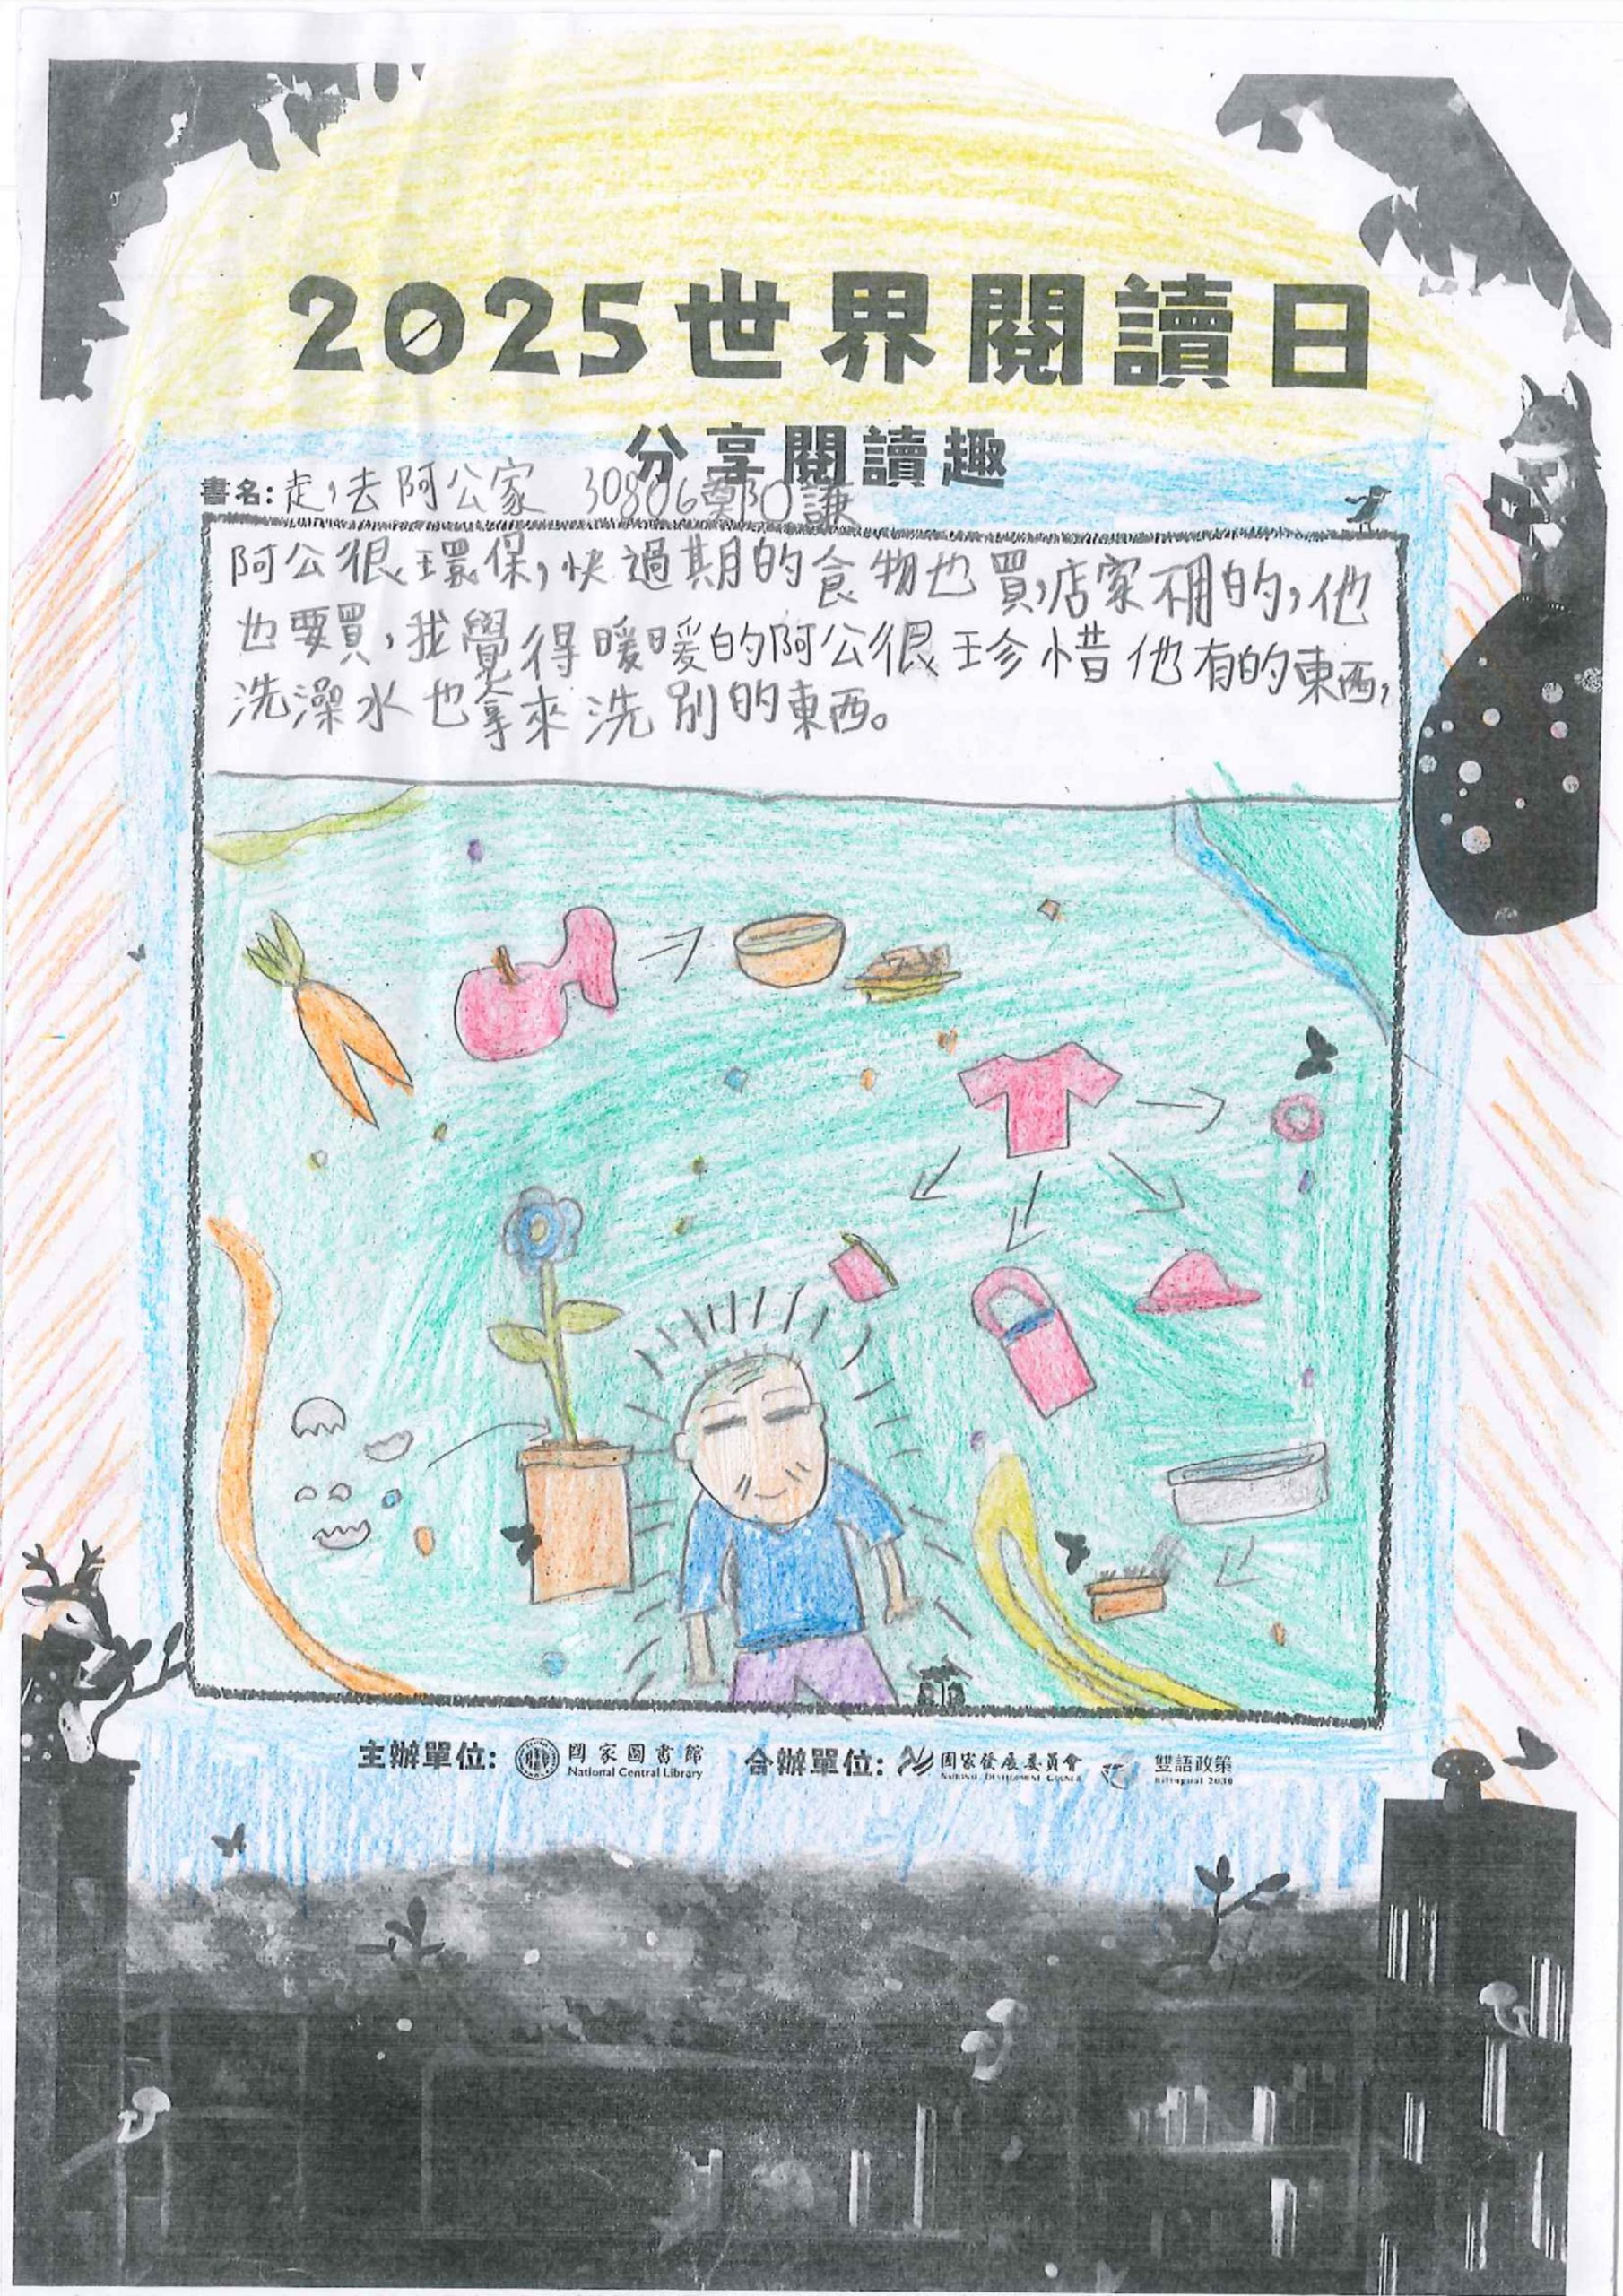 2025世界閱讀日
分享閱讀趣
書名: 走,去阿公家 30806鄭O謙
阿公很環保,快過期的食物也買,店家不用的,他
也要買,我覺得暖暖的阿公很珍惜他有的東西,
洗澡水也拿來洗別的東西。
主辦單位: 國家圖書館 National Central Library 合辦單位: 國家發展委員會 NATIONAL DEVELOPMENT COUNCIL 雙語政策 Bilingual 2030